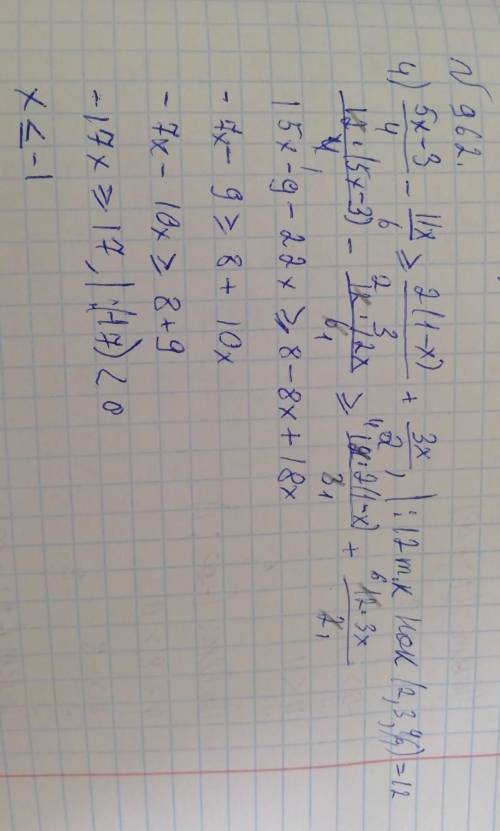 № 962.
4) (5x-3)/4 - 11x/6 ≥ 2(1-x)/3 + 3x/2, | :12 т.к НОК (2,3,4,6)=12
12·(5x-3)/4 - 12·12x/6 ≥ 12·2(1-x)/3 + 12·3x/2
15x-9-22x ≥ 8-8x+18x
-7x-9 ≥ 8+10x
-7x-10x ≥ 8+9
-17x ≥ 17, | :(-17) < 0
x ≤ -1